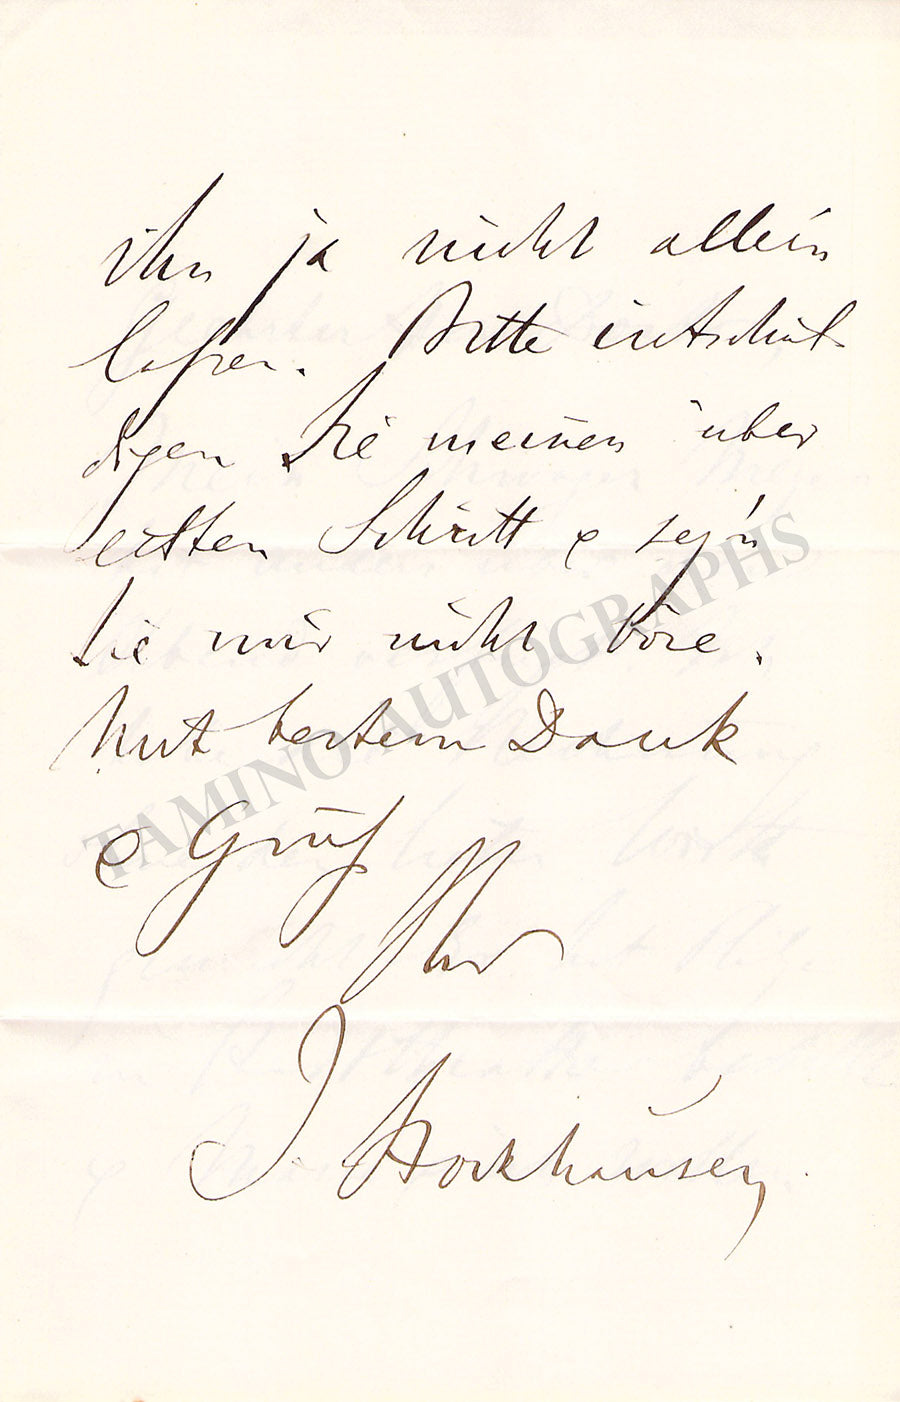 ihn ja nicht allein
laſsen. Bitte entschul-
digen Sie meinen über
eilten Schritt & sey'n
Sie mir nicht böse.
Mit bestem Dank
& Gruß
Ihr
J. Stockhausen
TAMINO AUTOGRAPHS